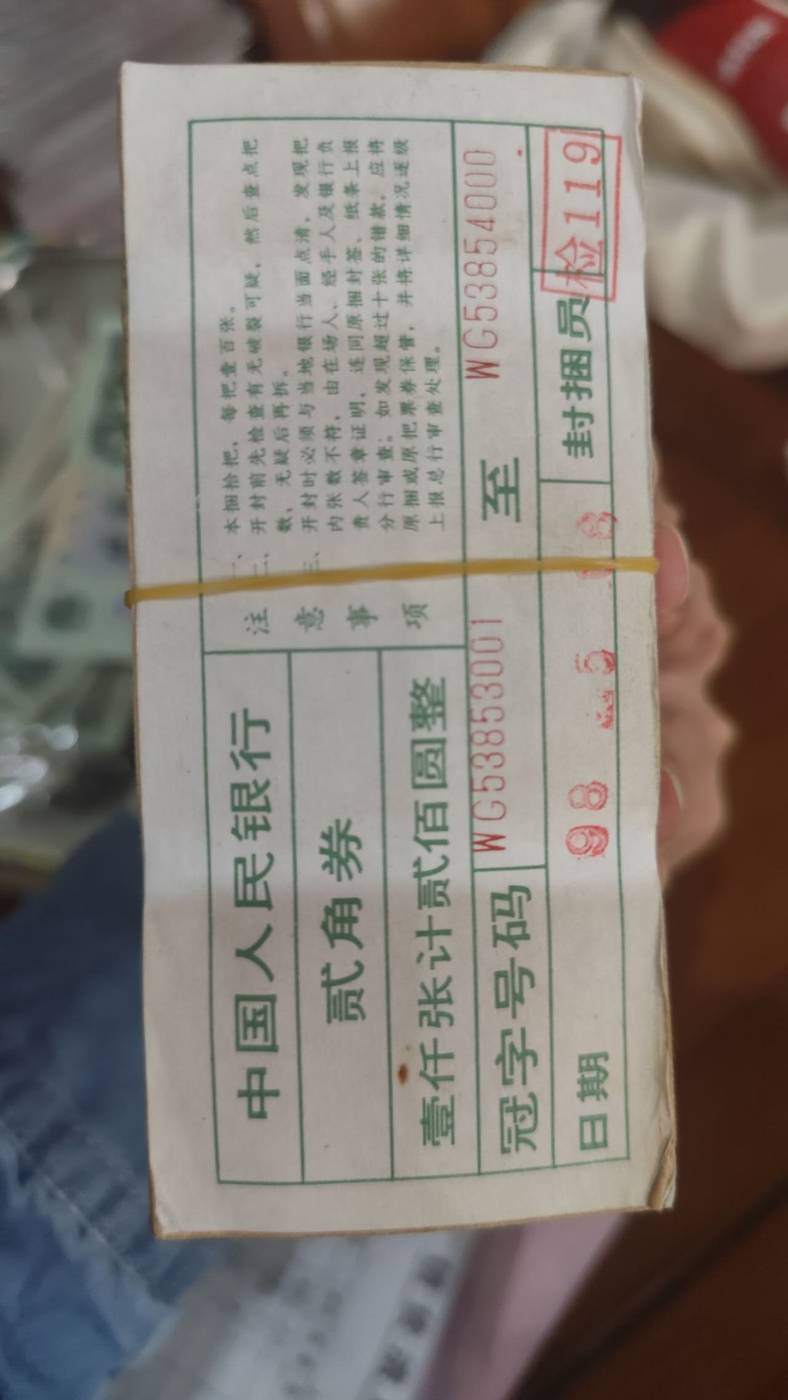 中国人民银行
贰角券
壹仟张计贰佰圆整
注意事项
一、本捆拾把，每把壹百张。
二、开封前先检查有无破裂可疑，然后查点把
数，无疑后再拆。
三、开封时必须与当地银行当面点清，发现把
内张数不符，由在场人、经手人及银行负
责人签章证明，连同原捆封签、纸条上报
分行审查；如发现超过十张的错款，应将
原捆或原把票券保管，并将详细情况逐级
上报总行审查处理。
冠字号码 WG53853001 至 WG53854000
日期 98 5 封捆员 检119